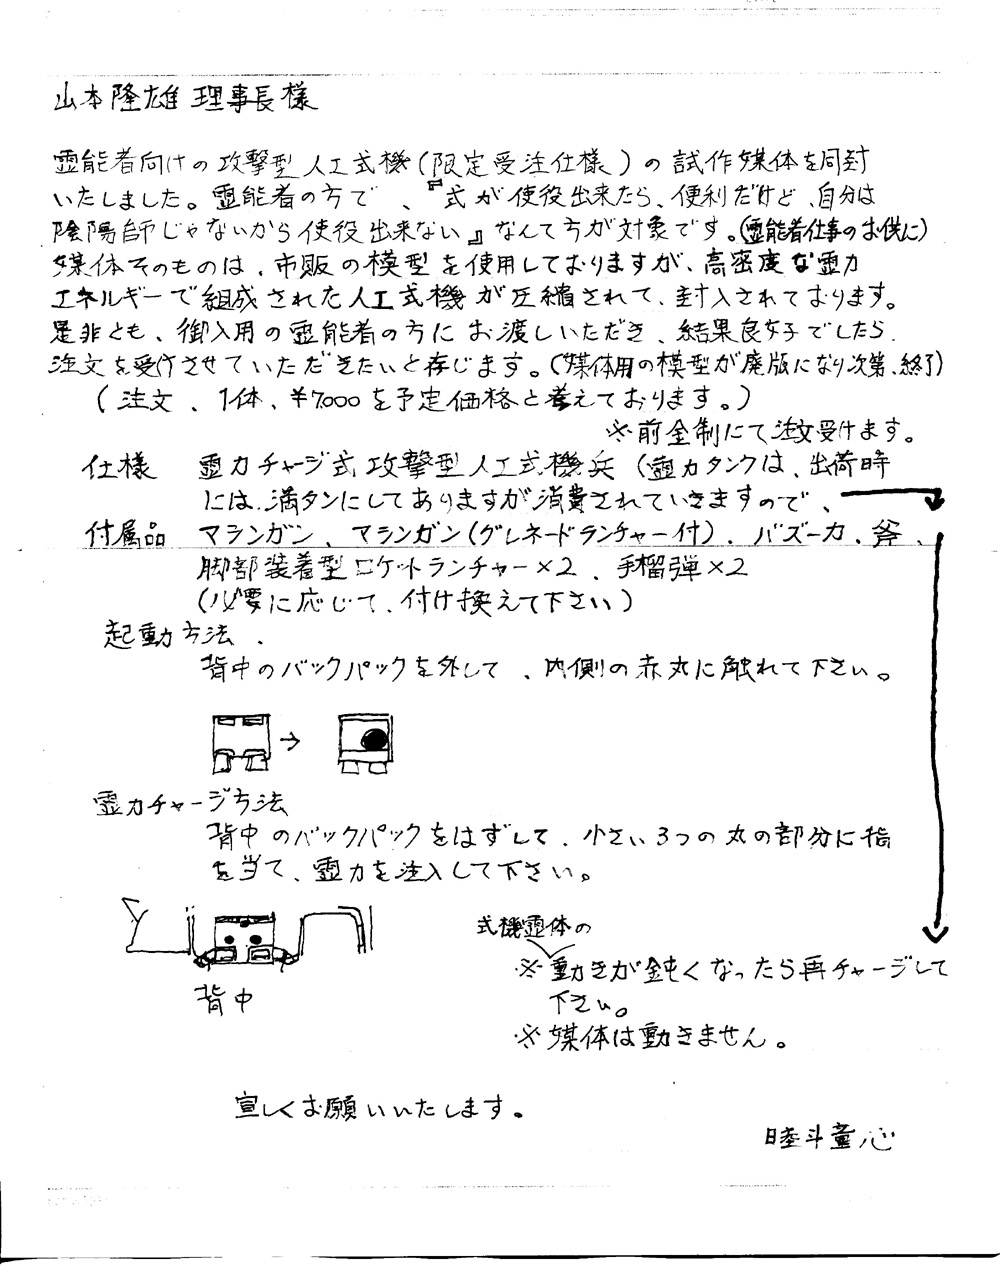 山本隆雄理事長様
霊能者向けの攻撃型人工式機(限定受注仕様)の試作媒体を同封
いたしました。霊能者の方で、『式が使役出来たら、便利だけど、自分は
陰陽師じゃないから使役出来ない』なんて方が対象です。(霊能者仕事のお供に)
媒体そのものは、市販の模型を使用しておりますが、高密度な霊力
エネルギーで組成された人工式機が圧縮されて、封入されております。
是非とも、御入用の霊能者の方にお渡しいただき、結果良好でしたら、
注文を受けさせていただきたいと存じます。(媒体用の模型が廃版になり次第、終了)
(注文、1体、¥7000を予定価格と考えております。)
※前金制にて注文受けます。
仕様 霊力チャージ式攻撃型人工式機兵(霊力タンクは、出荷時
には、満タンにしてありますが消費されていきますので、
付属品 マシンガン、マシンガン(グレネードランチャー付)、バズーカ、斧、
脚部装着型ロケットランチャー×2、手榴弾×2
(必要に応じて、付け換えて下さい)
起動方法、
背中のバックパックを外して、内側の赤丸に触れて下さい。
霊力チャージ方法
背中のバックパックをはずして、小さい3つの丸の部分に指
を当て、霊力を注入して下さい。
背中
式機霊体の
※動きが鈍くなったら再チャージして
下さい。
※媒体は動きません。
宜しくお願いいたします。
睦斗童心